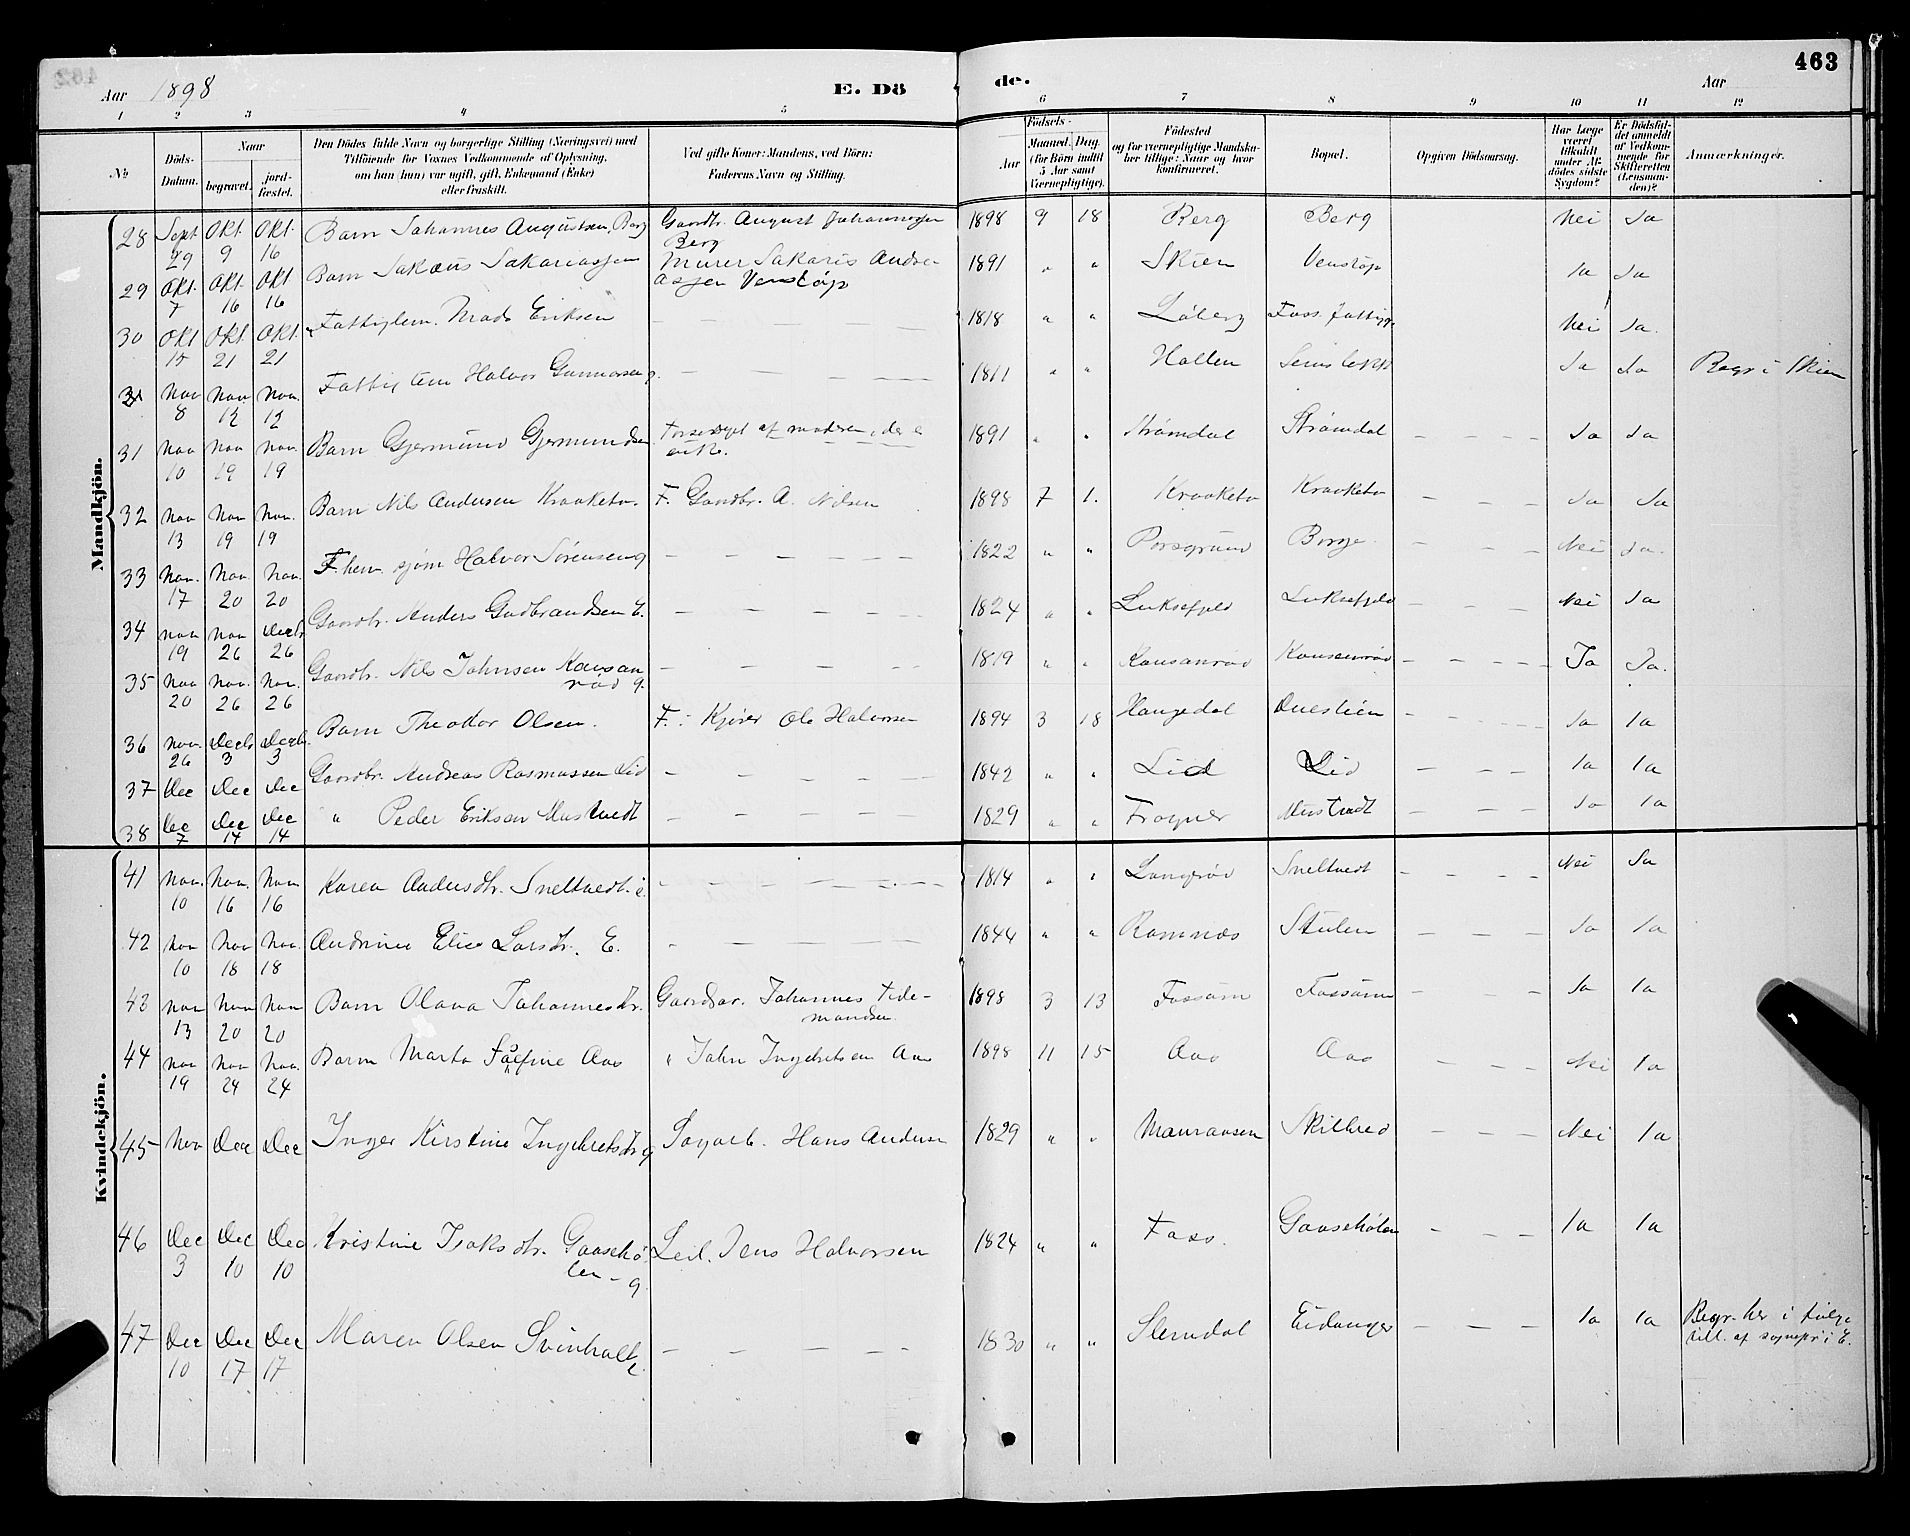 463
Aar 1898
E. Dö de.
Aar
1 2 3 4 5 6 7 8 9 10 11 12
№
Döds-Datum.
Naar
begravet.
jord-fæstet.
Den Dödes fulde Navn og borgerlige Stilling (Næringsvei) med
Tilföiende for Voxnes Vedkommende af Oplysning,
om han (hun) var ugift, gift, Enkemand (Enke)
eller fraskilt.
Ved gifte Koner: Mandens, ved Börn:
Faderens Navn og Stilling.
Födsels-
Aar
Maaned. Dag.
(for Börn indtil
5 Aar samt
Værnepligtige).
Födested
og for værnepligtige Mandskaber tillige: Naar og hvor
konfirmeret.
Bopæl.
Opgiven Dödsaarsag.
Har Læge
været
tilkaldt
under Afdödes sidste
Sygdom?
Er Dödsfaldet anmeldt
af Vedkommende for
Skifteretten
(Lensmanden)?
Anmærkninger.
Mandkjön.
28 Sept 29 Okt. 9 Okt. 16 Barn Johannes Augustsen, Berg Gaardbr. August Johannesen Berg 1898 9 18 Berg Berg Nei Ja
29 Okt. 7 Okt 16 Okt 16 Barn Sakæus Sakariassen Murer Sakaris Andreassen Venstøp 1891 " " Skien Venstøp Ja Ja
30 Okt 15 Okt 21 Okt. 21 Fattiglem. Mads Eriksen — — — — 1818 " " Løberg Foss. fattigg. Nei Ja.
31 Nov 8 Nov 12 Nov. 12 Fattiglem Halvor Gunnarsen g. — — — — 1811 " " Hallen Ja Ja Begr i Skien
31 Nov 10 Nov 19 Nov. 19 Barn Gjermund Gjermundsen Forsørget af moderen, der er enke. 1891 " " Strømdal Strømdal — — — Ja Ja
32 Nov 13 Nov 19 Nov. 19 Barn Nils Andersen Kraaketo. F. Gaardbr. A. Nilsen 1898 7 1. Kraaketo Kraaketo — — — Ja Ja
33 Nov. 17 Nov. 20 Nov. 20 F hen. sjøm Halvor Sørensen g — — — — 1822 " " Porsgrund Borge Nei Ja.
34 Nov 19 Nov 26 Decbr 26 Gaardbr. Anders Gudbrandsen E. — — — — 1824 " " Luksefjeld Luksefjeld — — — Nei Ja
35 Nov 20 Nov. 26 Nov. 26 Gaardbr. Nils Johnsen Kousanrød g. — — — — 1819 " " Kousanrød Kousanrød — — — Ja Ja.
36 Nov. 26 Decb 3 Decb. 3 Barn Theodor Olsen. F: Kjører Ole Halvorsen 1894 3 18 Haugedal — — — Ja Ja
37 Dec Dec Dec Gaardbr. Andreas Rasmussen Lid — — — — 1842 " " Lid Lid — — — Ja Ja
38 Dec 7 Dec 14 Dec 14 " Peder Eriksen Mustvedt — — — — 1829 " " Frogner Mustvedt — — — Ja Ja
Kvindekjön.
41 Nov. 10 Nov. 16 Nov 16 Karen Andersdtr. Sneltvedt. e. — — — — 1814 " " Langrød Sneltvedt — — — Nei Ja
42 Nov 10 Nov 18 Nov. 18 Andrine Elise Larsdtr. E. — — — — 1844 " " Ramnæs Stulen — — — Ja Ja
43 Nov 13 Nov 20 Nov 20 Barn Olava Johannesdtr. Gaardbr. Johannes Tidemandsen 1898 3 13 Fossum Fossum — — — Ja Ja
44 Nov 19 Nov 24 Nov. 24 Barn Marta Josefine Aas " John Ingebretsen Aas 1898 11 15 Aas Aas — — — Nei Ja
45 Nov Dec Dec Inger Kirstine Ingebretsdtr g Sagarb. Hans Andersen 1829 " " Skilbred — — — Nei Ja
46 Dec 3 Dec 10 Dec 10 Kristine Isaksdtr. Gaasehølen — g Leil. Jens Halvorsen 1824 " " Foss. Gaasehølen — — — Ja Ja
47 Dec 10 Dec 17 Dec 17 Maren Olsen Svinholt e. — — — — 1830 " " Slemdal Eidanger — — — Ja Ja Begr. her i følge till. af sognepr. i E.